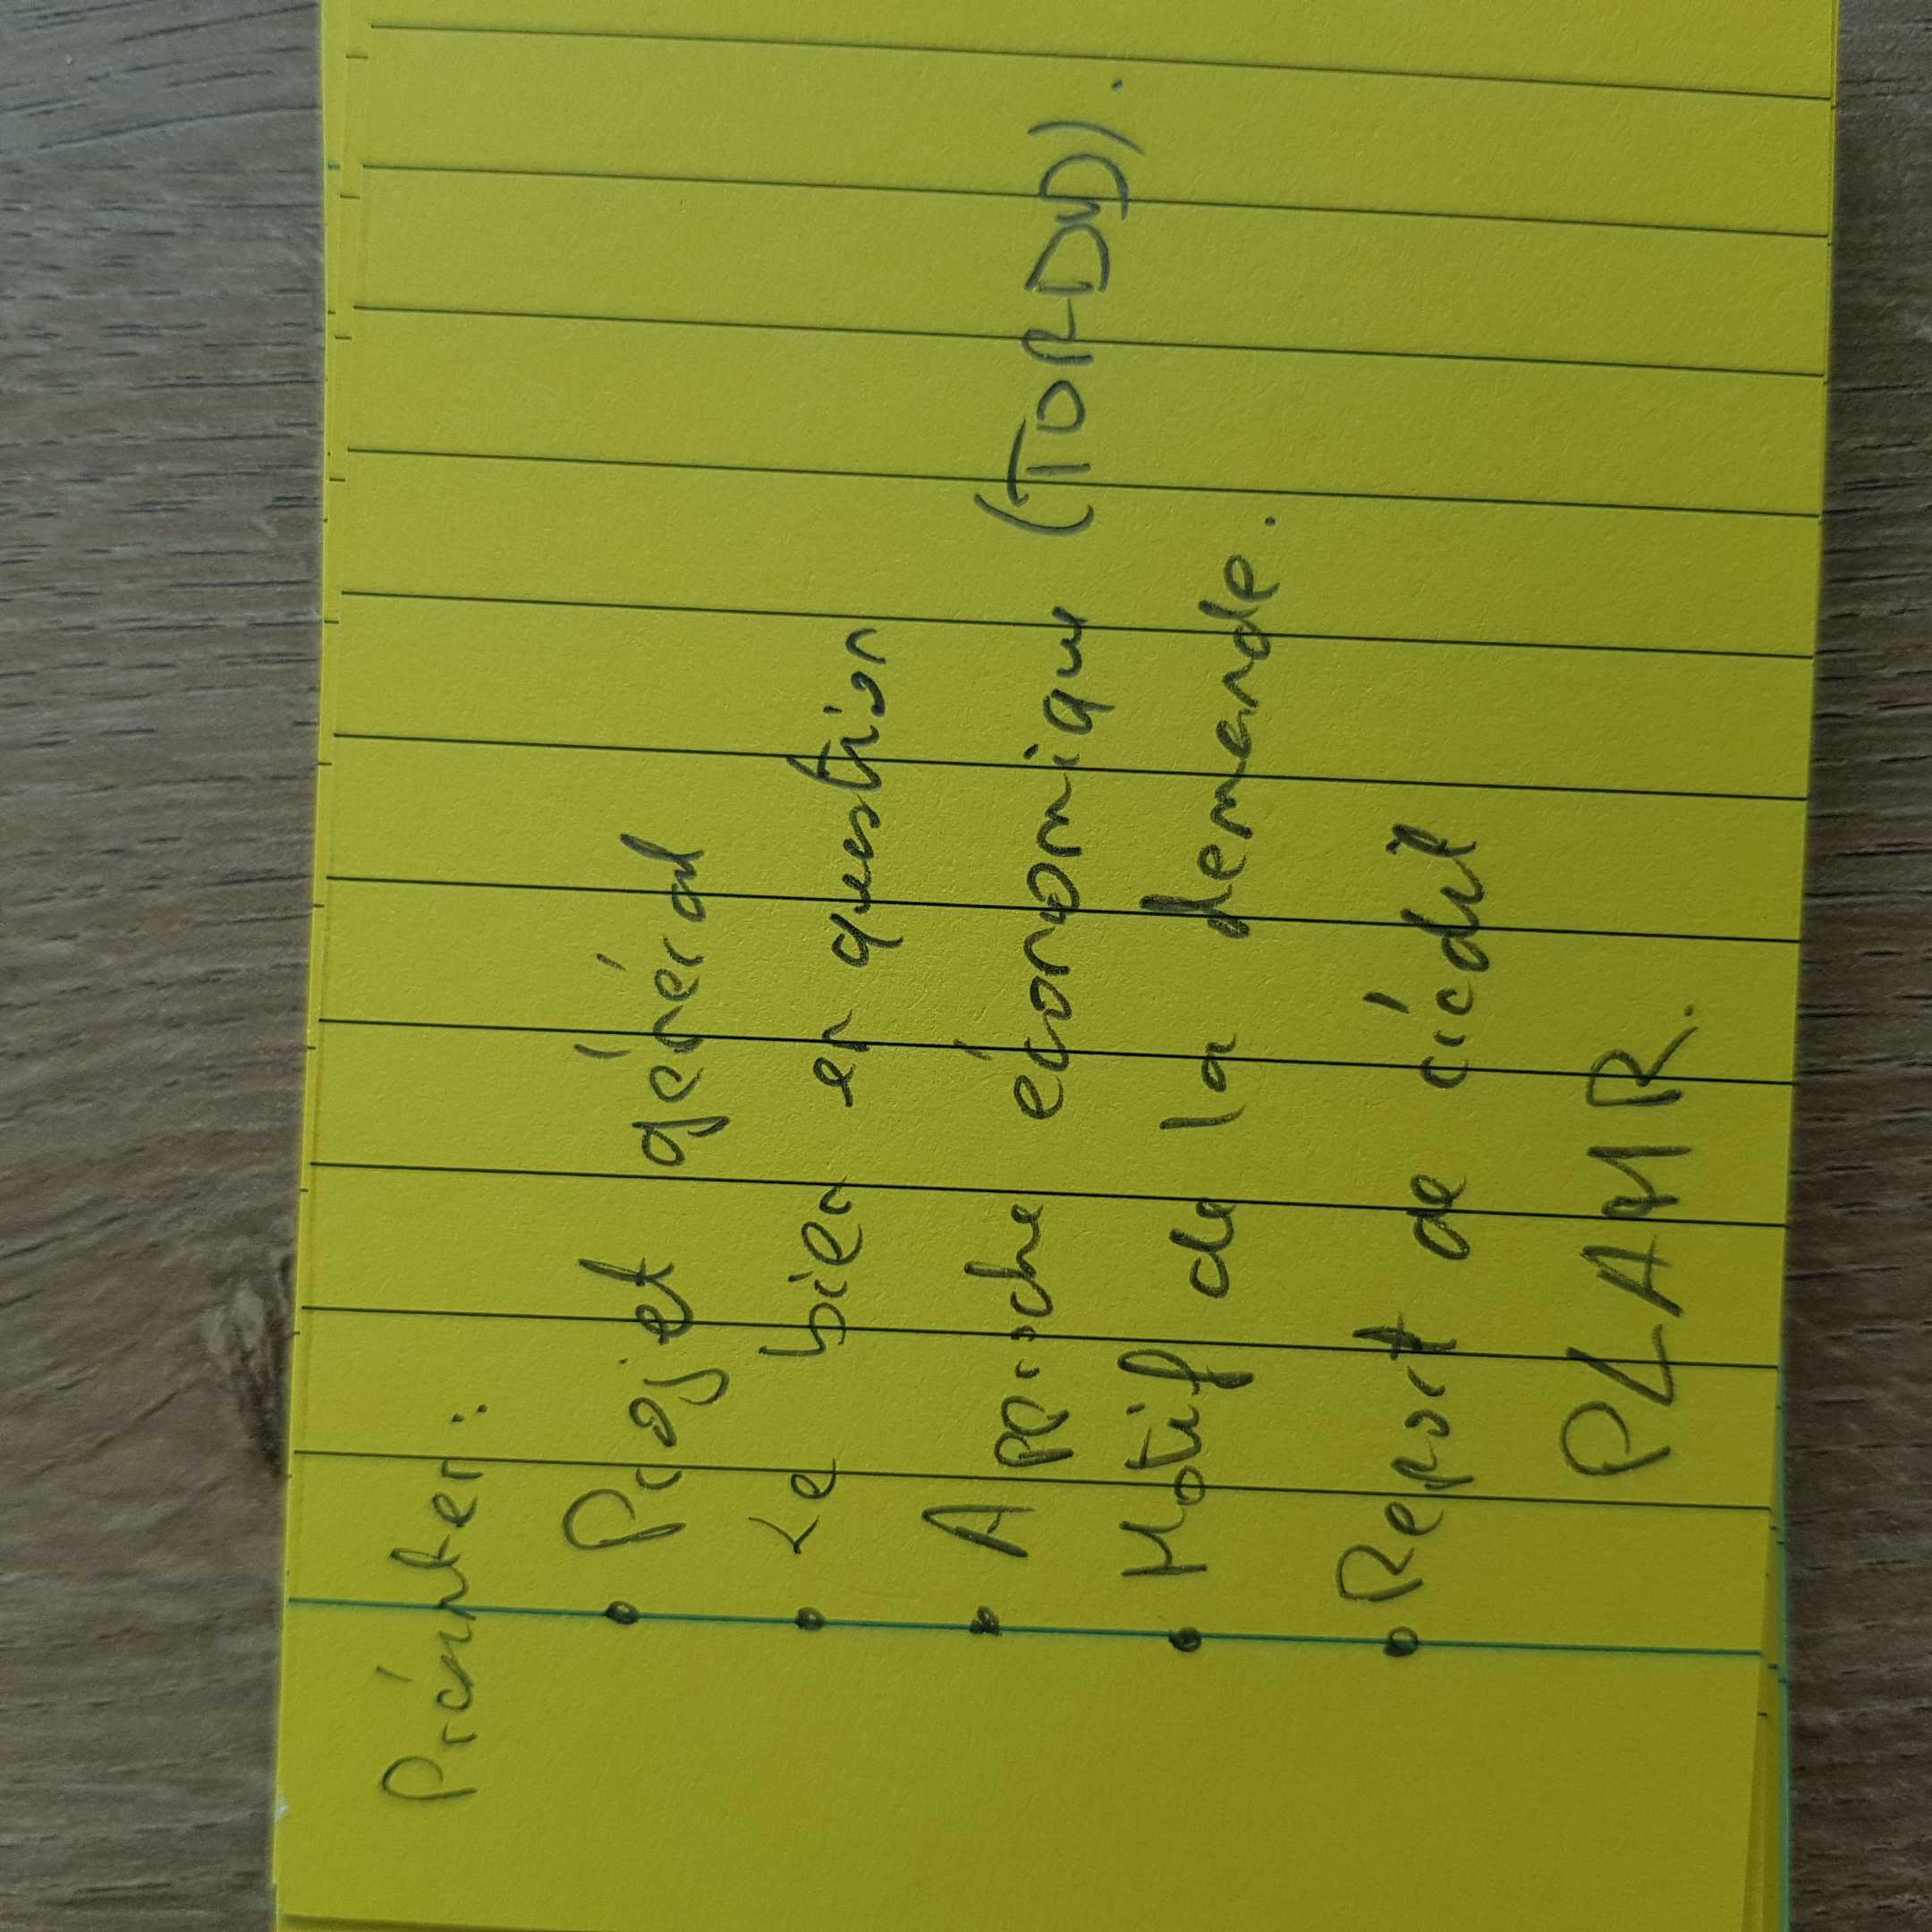 Présenter :
• Projet général
• Le bien en question
• Approche économique (TORDU).
• Motif de la demande.
• Report de crédit
PLAMR.